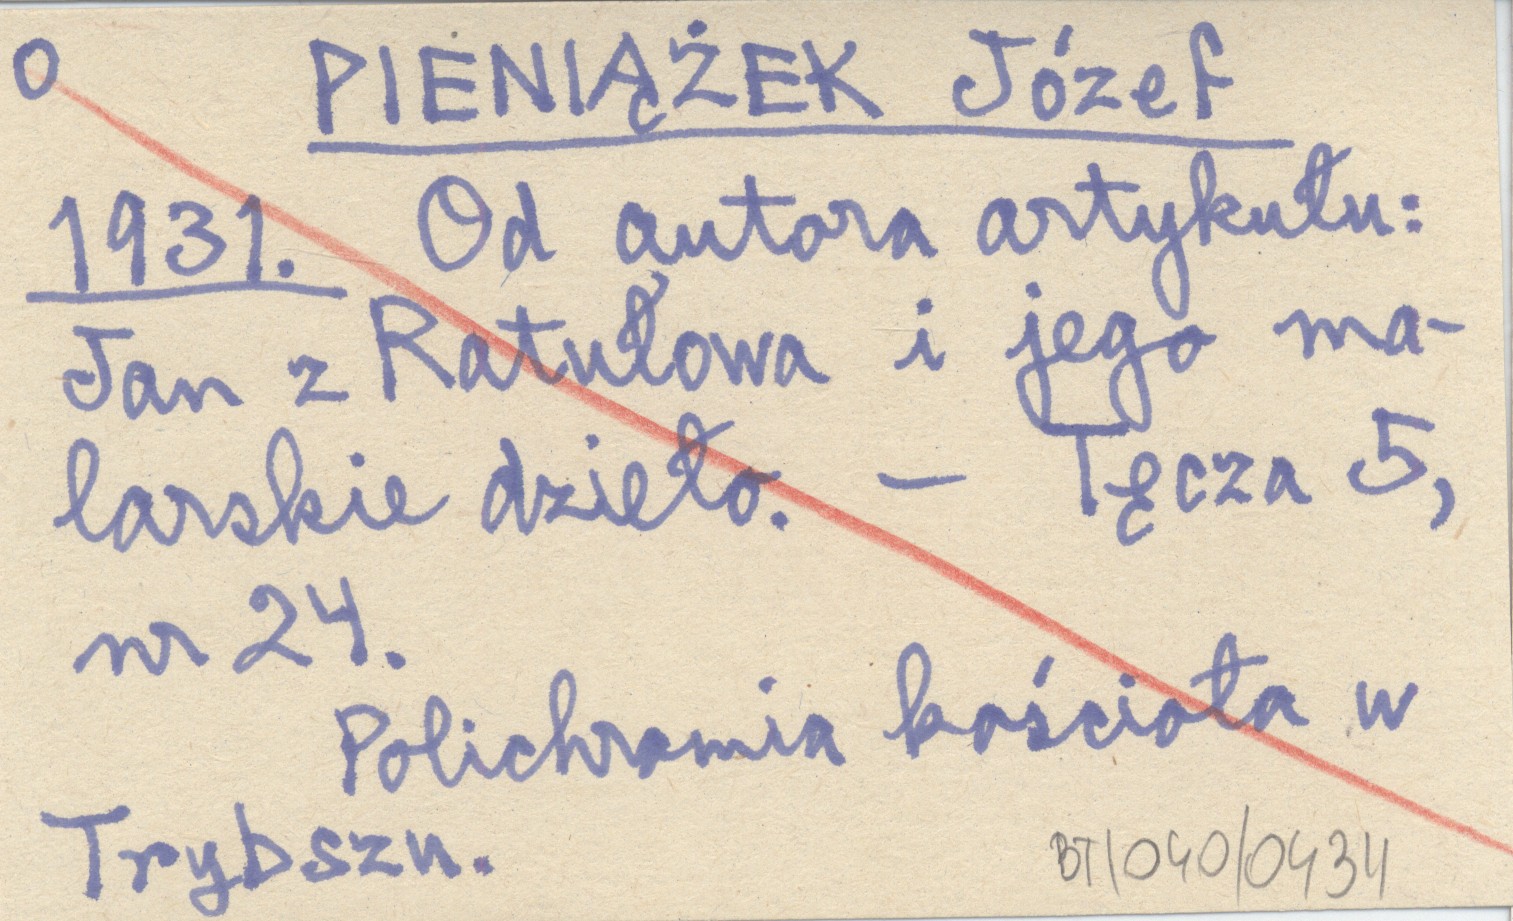 O PIENIĄŻEK Józef
1931. Od autora artykułu:
Jan z Ratułowa i jego ma-
larskie dzieło. — Tęcza 5,
nr 24.
Polichromia kościoła w
Trybszu.
BT/040/0434